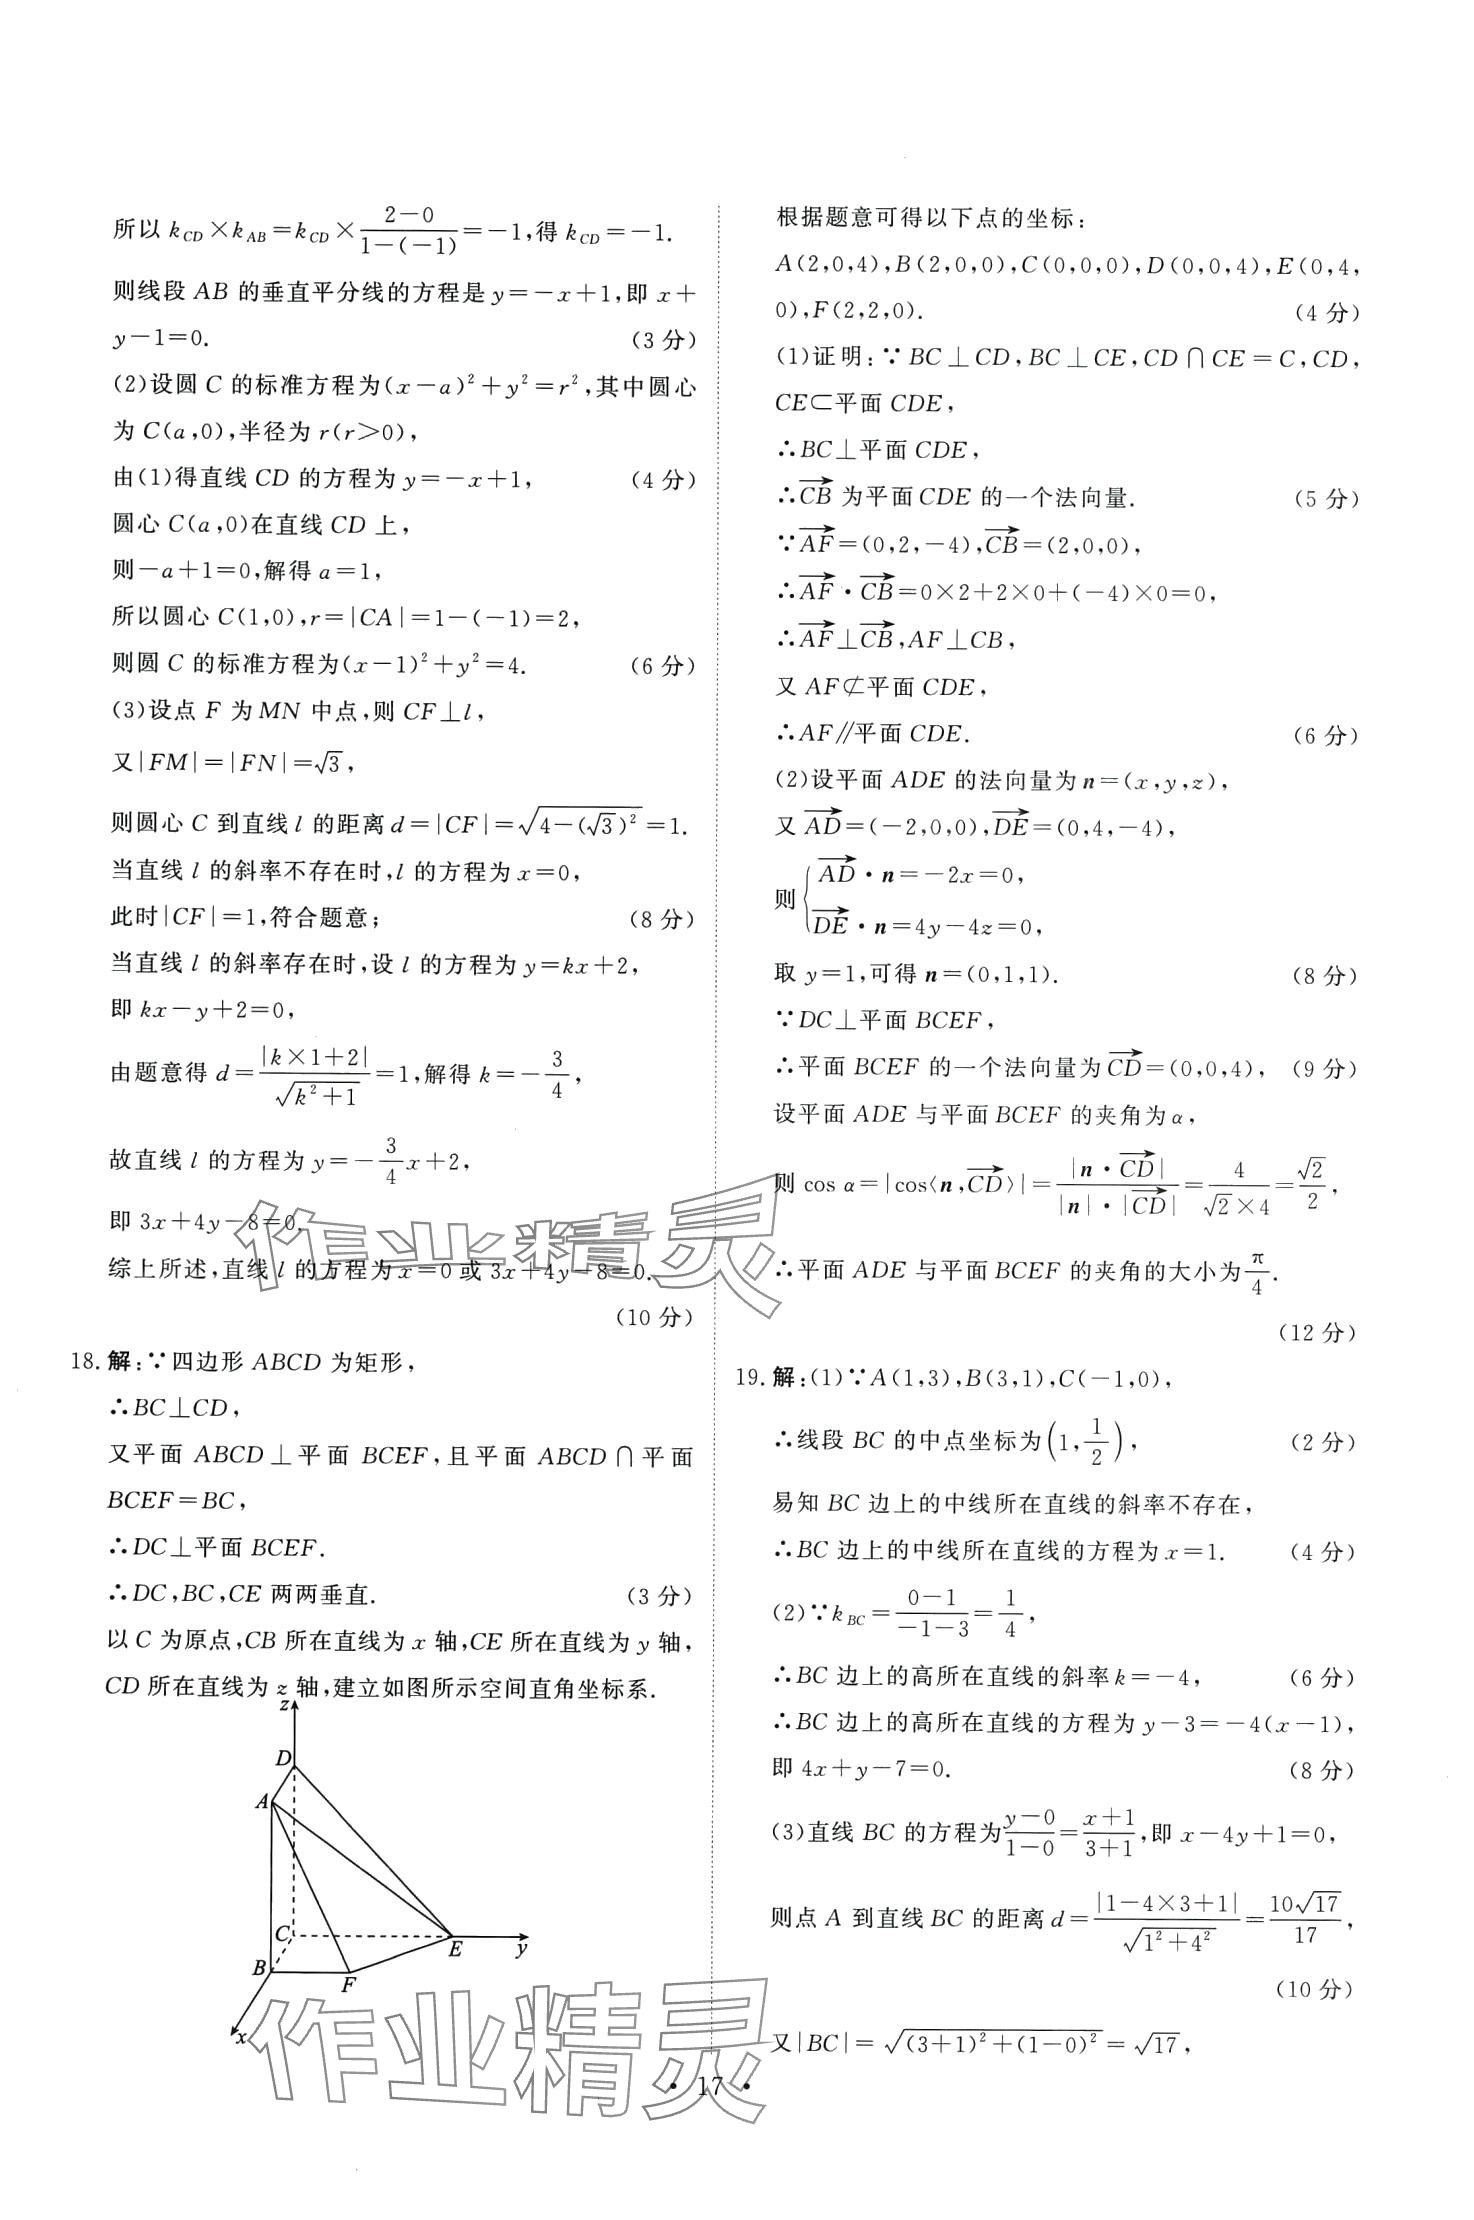 所以 k_CD×k_AB=k_CD×(2-0)/(1-(-1))=-1,得 k_CD=-1.
则线段 AB 的垂直平分线的方程是 y=-x+1,即 x+
y-1=0. (3 分)
(2)设圆 C 的标准方程为(x-a)²+y²=r²,其中圆心
为 C(a,0),半径为 r(r>0),
由(1)得直线 CD 的方程为 y=-x+1, (4 分)
圆心 C(a,0)在直线 CD 上,
则-a+1=0,解得 a=1,
所以圆心 C(1,0),r=|CA|=1-(-1)=2,
则圆 C 的标准方程为(x-1)²+y²=4. (6 分)
(3)设点 F 为 MN 中点,则 CF⊥l,
又|FM|=|FN|=√3,
则圆心 C 到直线 l 的距离 d=|CF|=√(4-(√3)²)=1.
当直线 l 的斜率不存在时,l 的方程为 x=0,
此时|CF|=1,符合题意; (8 分)
当直线 l 的斜率存在时,设 l 的方程为 y=kx+2,
即 kx-y+2=0,
由题意得 d=|k×1+2|/√(k²+1)=1,解得 k=-3/4,
故直线 l 的方程为 y=-3/4x+2,
即 3x+4y-8=0.
综上所述,直线 l 的方程为 x=0 或 3x+4y-8=0.
(10 分)
18. 解:∵四边形 ABCD 为矩形,
∴BC⊥CD,
又平面 ABCD⊥平面 BCEF,且平面 ABCD∩平面
BCEF=BC,
∴DC⊥平面 BCEF.
∴DC,BC,CE 两两垂直. (3 分)
以 C 为原点,CB 所在直线为 x 轴,CE 所在直线为 y 轴,
CD 所在直线为 z 轴,建立如图所示空间直角坐标系.
z
D
A
C
E
y
B
F
x
根据题意可得以下点的坐标:
A(2,0,4),B(2,0,0),C(0,0,0),D(0,0,4),E(0,4,
0),F(2,2,0). (4 分)
(1)证明:∵BC⊥CD,BC⊥CE,CD∩CE=C,CD,
CE⊂平面 CDE,
∴BC⊥平面 CDE,
∴→CB 为平面 CDE 的一个法向量. (5 分)
∵→AF=(0,2,-4),→CB=(2,0,0),
∴→AF·→CB=0×2+2×0+(-4)×0=0,
∴→AF⊥→CB,AF⊥CB,
又 AF⊄平面 CDE,
∴AF∥平面 CDE. (6 分)
(2)设平面 ADE 的法向量为 n=(x,y,z),
又→AD=(-2,0,0),→DE=(0,4,-4),
则{→AD·n=-2x=0,
→DE·n=4y-4z=0,
取 y=1,可得 n=(0,1,1). (8 分)
∵DC⊥平面 BCEF,
∴平面 BCEF 的一个法向量为→CD=(0,0,4), (9 分)
设平面 ADE 与平面 BCEF 的夹角为 α,
则 cos α=|cos⟨n,→CD⟩|=|n·→CD|/(|n|·|→CD|)=4/(√2×4)=√2/2,
∴平面 ADE 与平面 BCEF 的夹角的大小为π/4.
(12 分)
19. 解:(1)∵A(1,3),B(3,1),C(-1,0),
∴线段 BC 的中点坐标为(1,1/2), (2 分)
易知 BC 边上的中线所在直线的斜率不存在,
∴BC 边上的中线所在直线的方程为 x=1. (4 分)
(2)∵k_BC=(0-1)/(-1-3)=1/4,
∴BC 边上的高所在直线的斜率 k=-4, (6 分)
∴BC 边上的高所在直线的方程为 y-3=-4(x-1),
即 4x+y-7=0. (8 分)
(3)直线 BC 的方程为(y-0)/(1-0)=(x+1)/(3+1),即 x-4y+1=0,
则点 A 到直线 BC 的距离 d=|1-4×3+1|/√(1²+4²)=10√17/17,
(10 分)
又|BC|=√((3+1)²+(1-0)²)=√17,
·17·
作业精灵
作业精灵